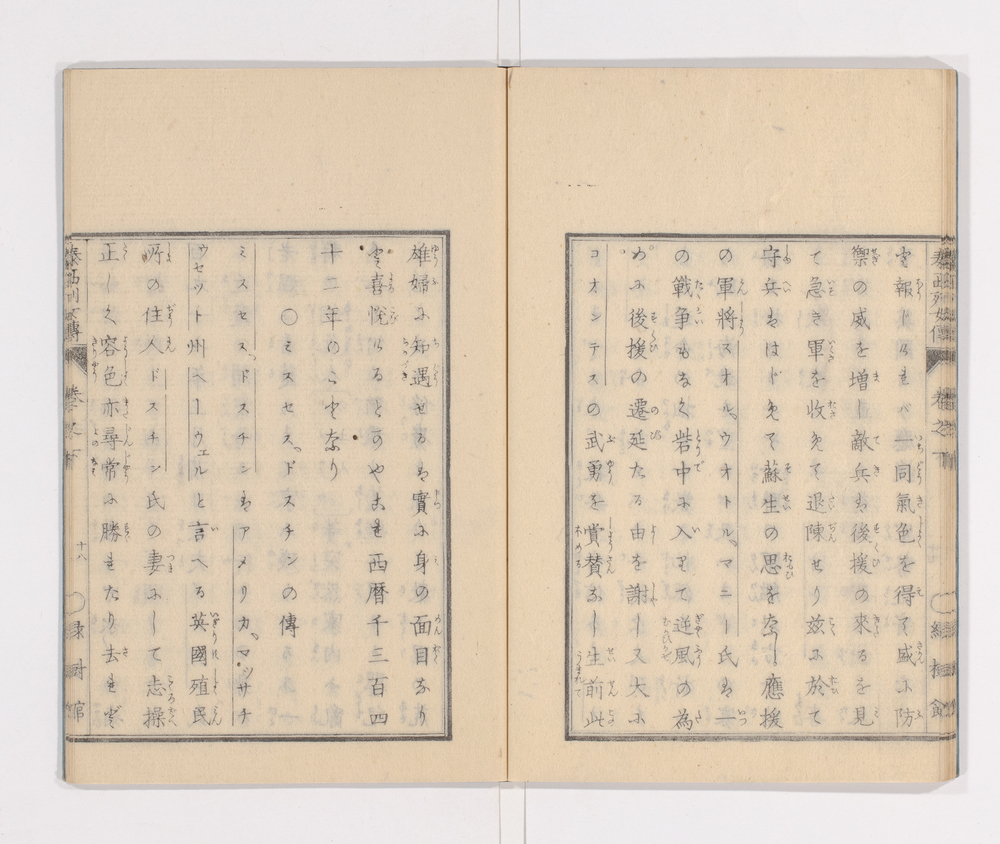 を報じけれバ一同氣色を得て盛に防
禦の威を増し敵兵ハ後援の來るを見
て急き軍を收めて退陳せり茲に於て
守兵ハはじめて蘇生の思を為し應援
の軍將スオル、ウオトル、マニー氏ハ一
の戰争もなく砦中に入りて逆風の為
めに後援の遷延たる由を謝し又大に
コオンテスの武勇を賞賛なし生前此
雄婦に知遇せるハ實に身の面目なり
と喜悦けるとのやこれ西暦千三百四
十二年のことなり
〇ミスセス、ドスチンの傳
ミスセス、ドスチンハアメリカ、マツサチ
ウセツト州ヘーウェルと言へる英國殖民
所の住人ドスチン氏の妻にして志操
正しく容色亦尋常に勝れたり去れど
泰西列女傳 卷之下 十八